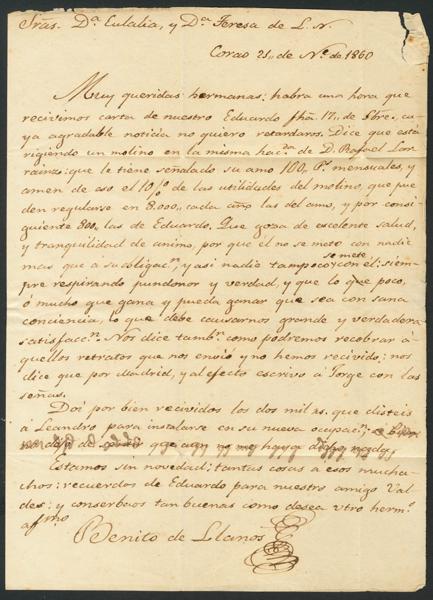 Sras. Da. Eulalia, y Da. Teresa de L. N.
Corao 21,, de Ne. de 1860
Muy queridas hermanas: habra una hora que
recivimos carta de nuestro Eduardo fha. 17,, de Sbre., cu-
ya agradable noticia no quiero retardaros. Dice que está
rigiendo un molino en la misma hacda. de D. Rafael Lar-
rainza: que le tiene señalado su amo 100,, Ps. mensuales, y
amen de eso el 10 p% de las utilidades del molino, que pue
den regularse en 8.000,, cada año las del amo, y por consi-
guiente 800,, las de Eduardo. Que goza de escelente salud,
y tranquilidad de animo, por que el no se mete con nadie
mas que á su obligacn., y asi nadie tampoco se mete con él: siem-
pre respirando pundonor y verdad, y que lo que poco,
ó mucho que gana y pueda ganar que sea con sana
conciencia, lo que debe causarnos grande y verdadera
satisfaccn. Nos dice tambn. como podremos recobrar á-
quellos retratos que nos envió y no hemos recivido: nos
dice que por Madrid, y al efecto escrivo á Jorge con las
señas.
Doi por bien recividos los dos mil rs. que disteis
á Leandro para instalarse en su nueva ocupacn.;
que aun no
Estamos sin novedad; tantas cosas a esos mucha-
chos; recuerdos de Eduardo para nuestro amigo Val-
des: y conserbaos tan buenas como desea vtro hermo.
affmo
Benito de Llanos